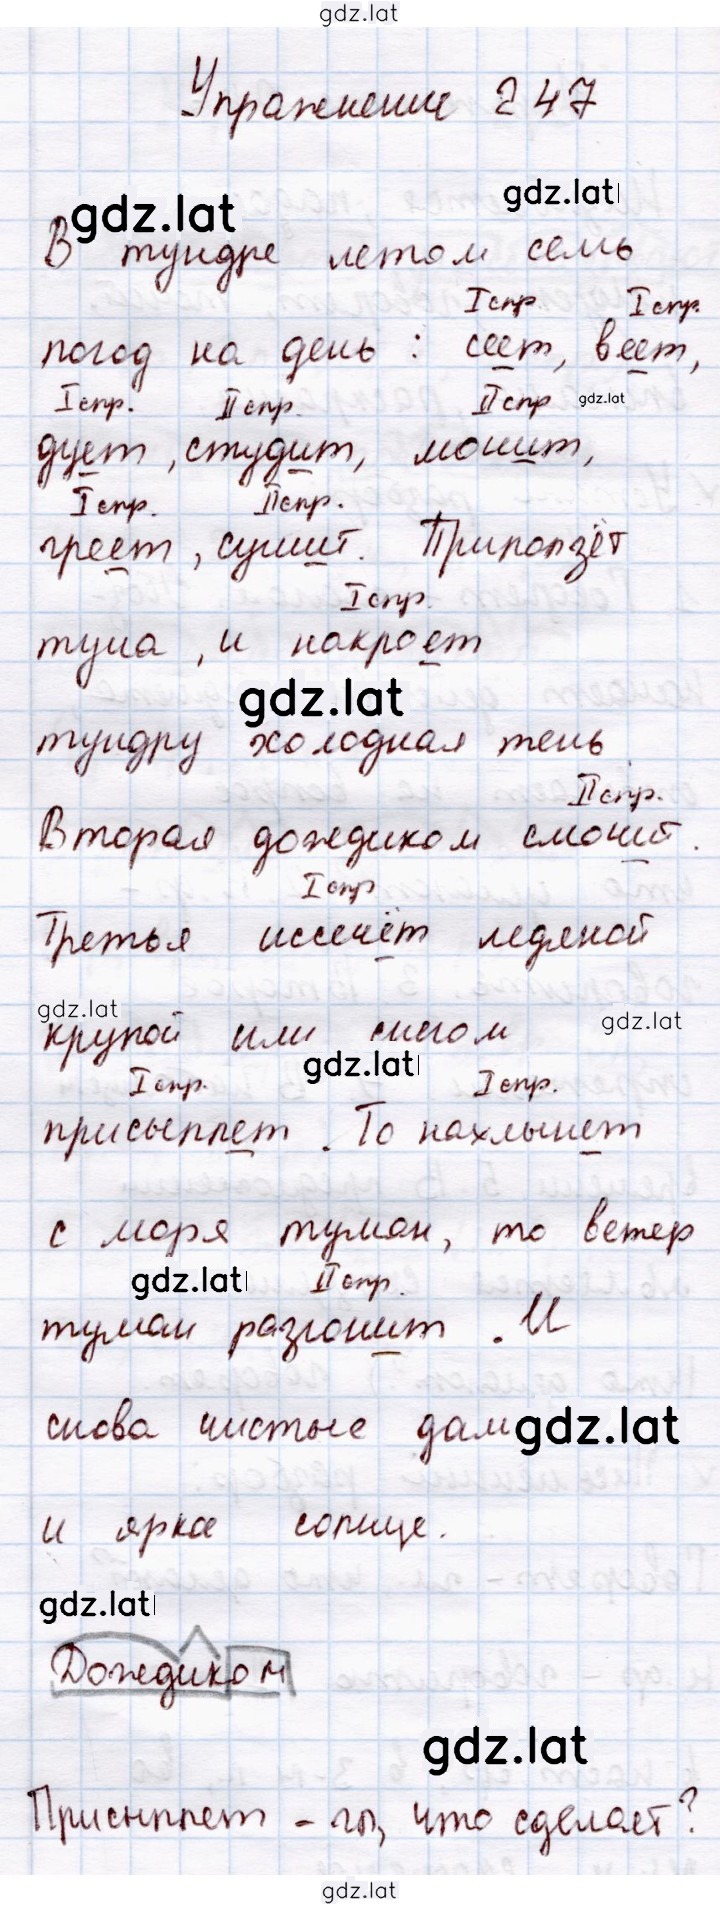 gdz.lat
Упражнение 247
gdz.lat gdz.lat
В тундре летом семь
I спр. I спр.
погод на день: сеет, веет,
I спр. II спр. II спр gdz.lat
дует, студит, мочит,
I спр. II спр.
греет, сушит. Приползёт
I спр.
туча, и накроет
gdz.lat
тундру холодная тень
II спр.
Вторая дождиком смочит.
I спр
Третья иссечёт ледяной
gdz.lat gdz.lat
крупой или снегом
gdz.lat
I спр. I спр.
присыплет. То нахлынет
с моря туман, то ветер
gdz.lat II спр.
туман разгонит. И
снова чистые дам gdz.lat
и яркое солнце.
gdz.lat
Дождиком
gdz.lat
Присыплет - гл, что сделает?
gdz.lat